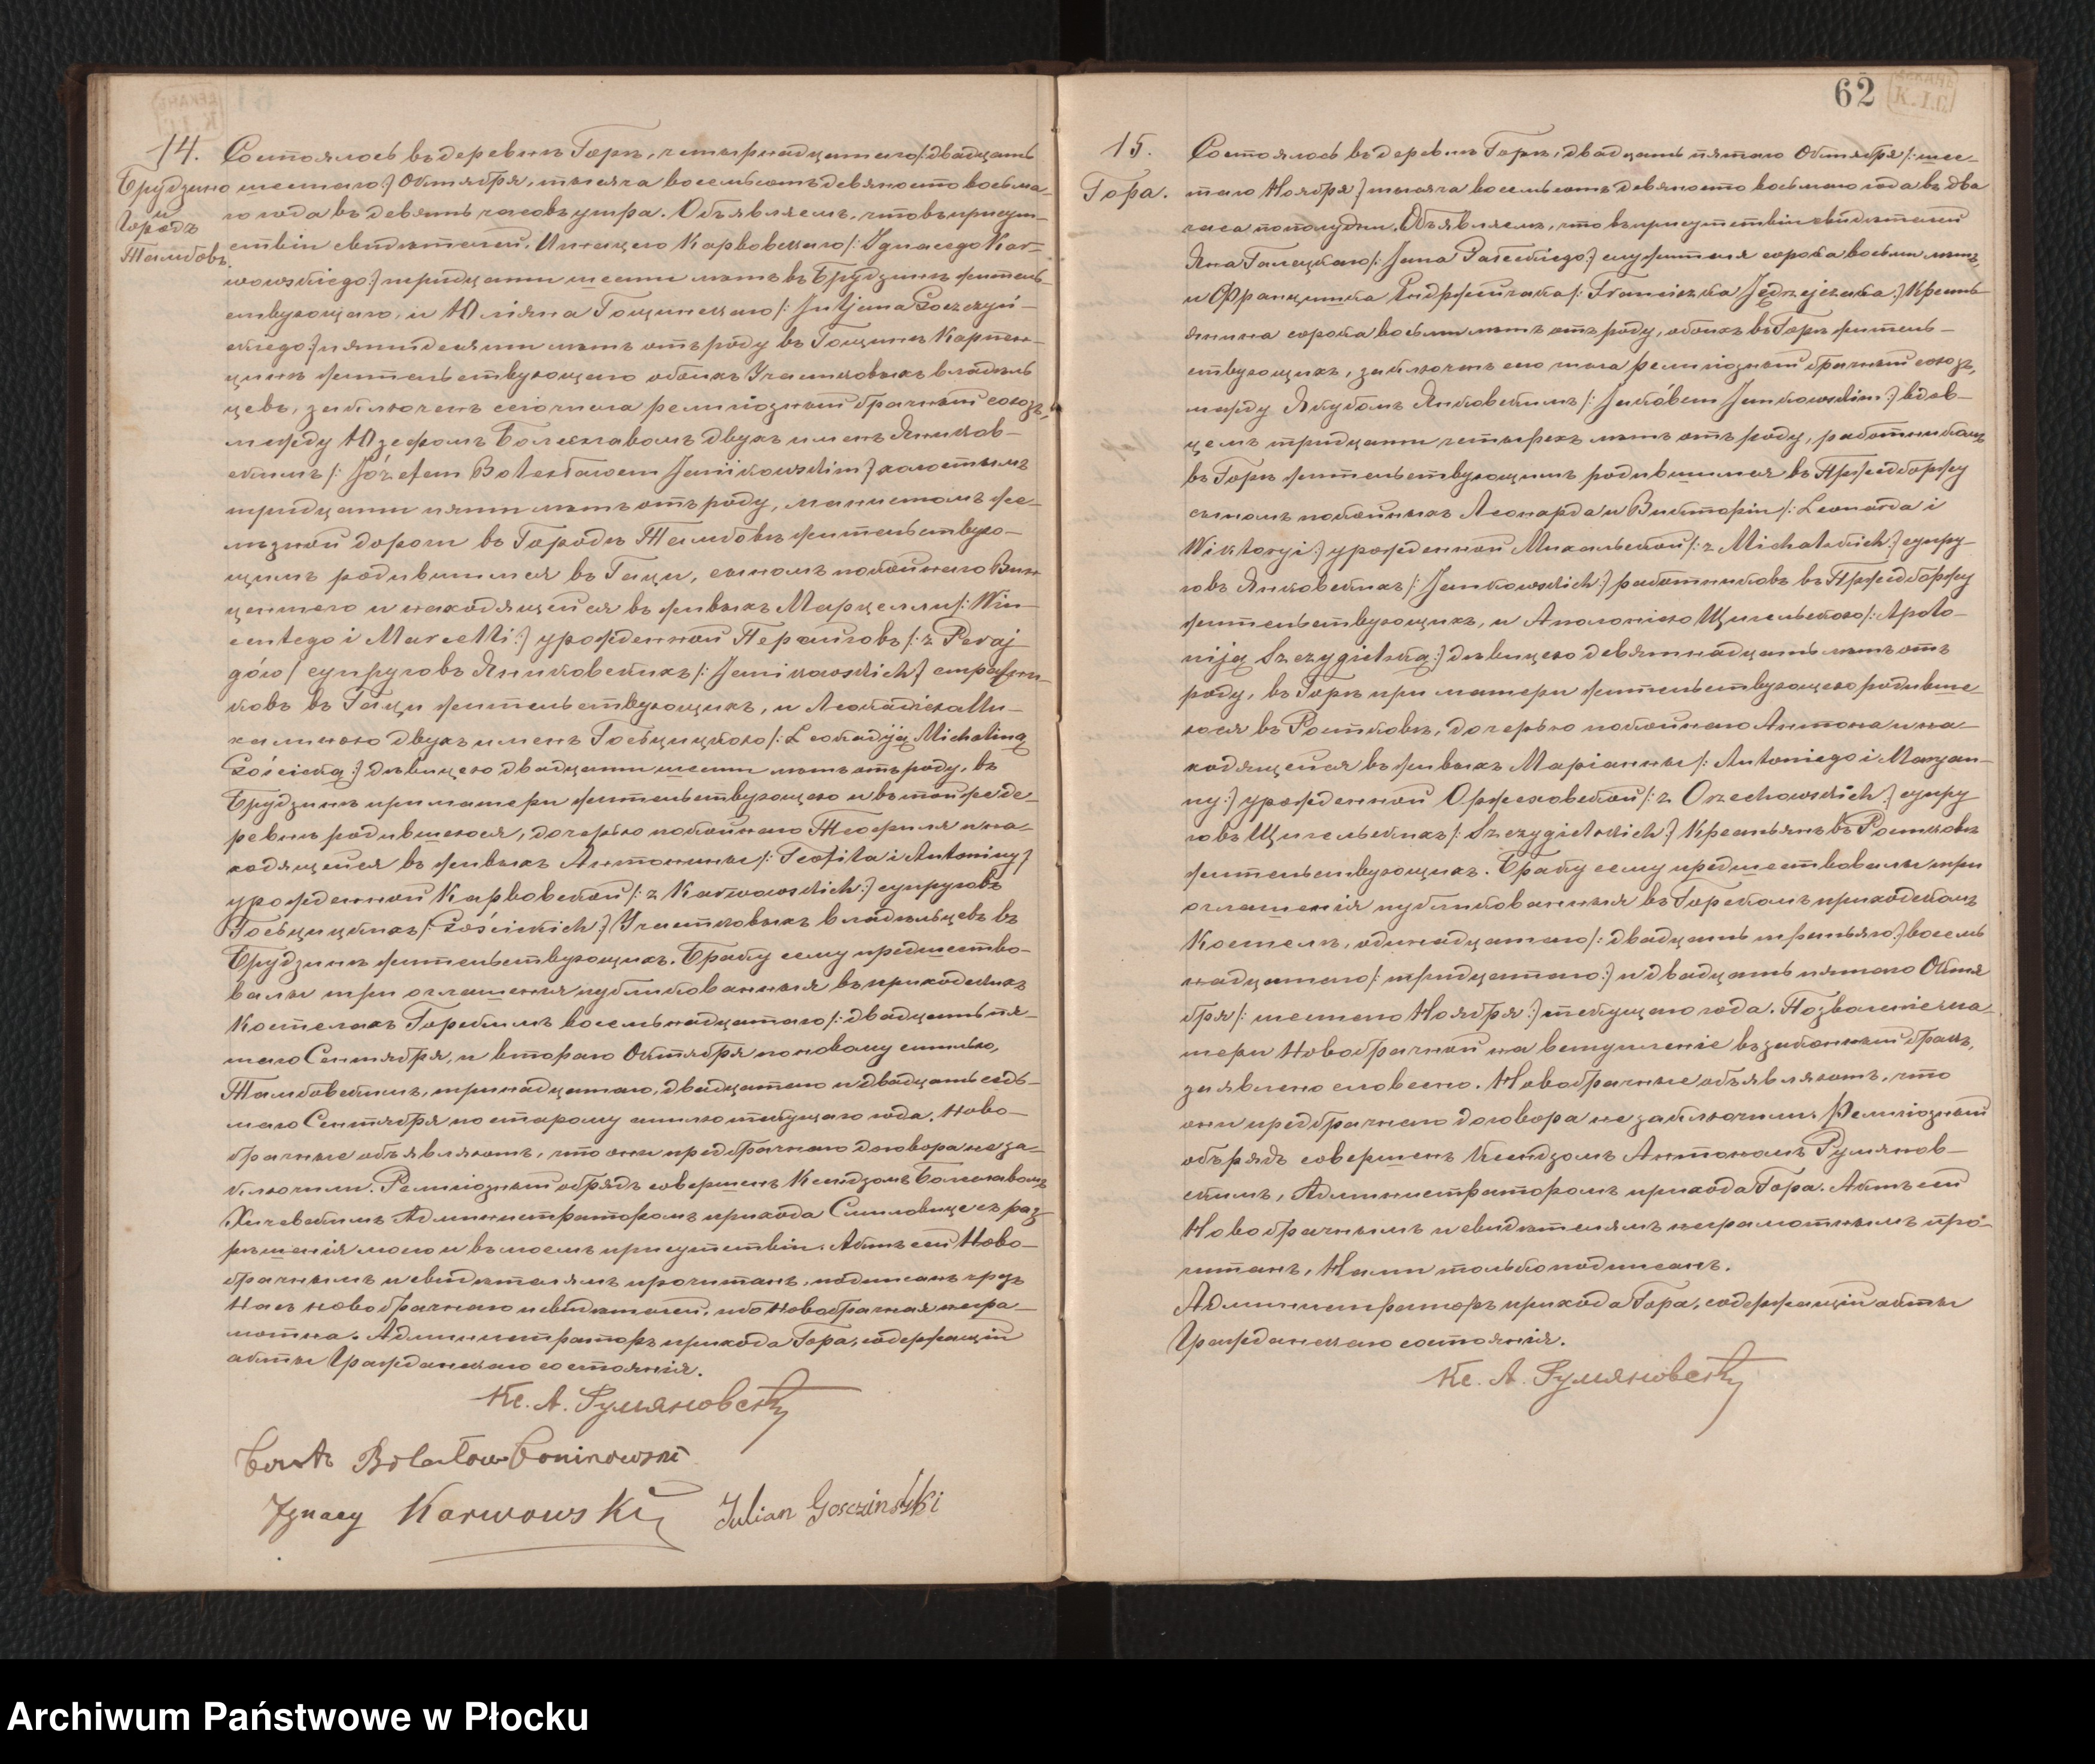 14.
Брудзино
и
Городъ
Тамбовъ
Состоялось въ деревнѣ Горѣ, четырнадцатаго /:двадцать
шестаго:/ Октября, тысяча восемьсотъ девяносто восьма-
го года въ девять часовъ утра. Объявляемъ, что въ присут-
ствіи свидѣтелей. Игнацего Карвовскаго /:Ignacego Kar-
wowskiego:/ тридцати шести лѣтъ въ Брудзинѣ житель-
ствующаго, и Юліяна Гощинскаго /:Juljana Goszczyń-
skiego:/ пятидесяти лѣтъ отъ роду въ Гощинѣ
жительствующаго обоихъ Участковыхъ владѣль
цевъ, заключенъ сего числа религіозный брачный союзъ,
между Юзефомъ Болеславомъ двухъ именъ Яников-
скимъ /:Józefem Bolesławem Janikowskim:/ холостымъ
тридцати пяти лѣтъ отъ роду, машистомъ же-
лѣзной дороги въ Городѣ Тамбовѣ жительствую-
щимъ родившимся въ Гаци, сыномъ покойнаго Вин
центего и находящейся въ живыхъ Марцелли /:Win-
centego i Marcelli:/ урожденной
супруговъ Яниковскихъ /:Janikowskich:/
въ Гаци жительствующихъ, и Леокадіею Ми-
халиною двухъ именъ Госьцицкою /:Leokadyją Michaliną
Gościcką:/ дѣвицею двадцати шести лѣтъ отъ роду, въ
Брудзинѣ при матери жительствующею и въ той же де-
ревнѣ родившеюся, дочерью покойнаго Теофиля и на-
ходящейся въ живыхъ Антонины /:Teofila i Antoniny:/
урожденной Карвовской /:z Karwowskich:/ супруговъ
Госьцицкихъ /:Gościckich:/ Участковыхъ владѣльцевъ въ
Брудзинѣ жительствующихъ. Браку сему предшество-
вали три оглашенія публикованныя въ приходскихъ
Костелахъ Горскимъ восемьнадцатаго /:двадцать пя-
таго Сентября, и втораго Октября по новому стилю,
Тамбовскимъ, тринадцатаго, двадцатаго и двадцать седь-
маго Сентября по старому стилю текущаго года. Ново-
брачные объявляютъ, что они предбрачнаго договора не за-
ключили. Религіозный обрядъ совершенъ Ксендзомъ Болеславомъ
Администраторомъ прихода съ раз-
рѣшенія моего и въ моемъ присутствіи. Актъ сей Ново-
брачнымъ и свидѣтелямъ прочитанъ, подписанъ чрезъ
Насъ новобрачнаго и свидѣтелей, ибо Новобрачная негра-
мотна. Администраторъ прихода Гора, содержащій
акты Гражданскаго состоянія.
Кс. А. Румяновскій
Bolesław
Ignacy Karwowski Julian Gosczinski
62
15.
Гора.
Состоялось въ деревнѣ Горѣ, двадцать пятаго Октября /:шес-
таго Ноября:/ тысяча восемьсотъ девяносто восьмаго года въ два
часа пополудни. Объявляемъ, что въ присутствіи свидѣтелей
Яна Галецкаго /:Jana Gałeckiego:/ служителя сорока восьми лѣтъ,
и Францишка Ендржейчака /:Franciszka Jędrzejczaka:/ Кресть-
янина сорока восьми лѣтъ отъ роду, обоихъ въ Горѣ житель-
ствующихъ, заключенъ сего числа религіозный брачный союзъ,
между Якубомъ Янковскимъ /:Jakóbem Jankowskim:/ вдов-
цемъ тридцати четырехъ лѣтъ отъ роду, работникомъ
въ Горѣ жительствующимъ родившимся въ
сыномъ покойныхъ Леонарда и Викторіи /:Leonarda i
Wiktoryi:/ урожденной Михальской /:z Michalskich:/ супру-
говъ Янковскихъ /:Jankowskich:/ работниковъ въ
жительствующихъ, и Аполоніею Щигельскою /:Apolo-
niją Szczygielską:/ дѣвицею девятнадцать лѣтъ отъ
роду, въ Горѣ при матери жительствующею родивше-
юся въ Ростковѣ, дочерью покойнаго Антона и на-
ходящейся въ живыхъ Маріанны /:Antoniego i Maryan-
ny:/ урожденной Оржеховской /:z Orzechowskich:/ супру
говъ Щигельскихъ /:Szczygielskich:/ Крестьянъ въ Ростковѣ
жительствующихъ. Браку сему предшествовали три
оглашенія публикованныя въ Горскомъ приходскомъ
Костелѣ, одинадцатаго /:двадцать третьяго:/ восемь
надцатаго /:тридцатаго:/ и двадцать пятаго Октя
бря /:шестаго Ноября:/ текущаго года. Позволеніе ма-
тери Новобрачной на вступленіе въ законный бракъ,
заявлено словесно. Новобрачные объявляютъ, что
они предбрачнаго договора не заключили. Религіозный
объ рядъ совершенъ Ксендзомъ Антономъ Румянов-
скимъ, Администраторомъ прихода Гора. Актъ сей
Новобрачнымъ и свидѣтелямъ неграмотнымъ про-
читанъ, Нами только подписанъ.
Администраторъ прихода Гора, содержащій акты
Гражданскаго состоянія.
Кс. А. Румяновскій
Archiwum Państwowe w Płocku